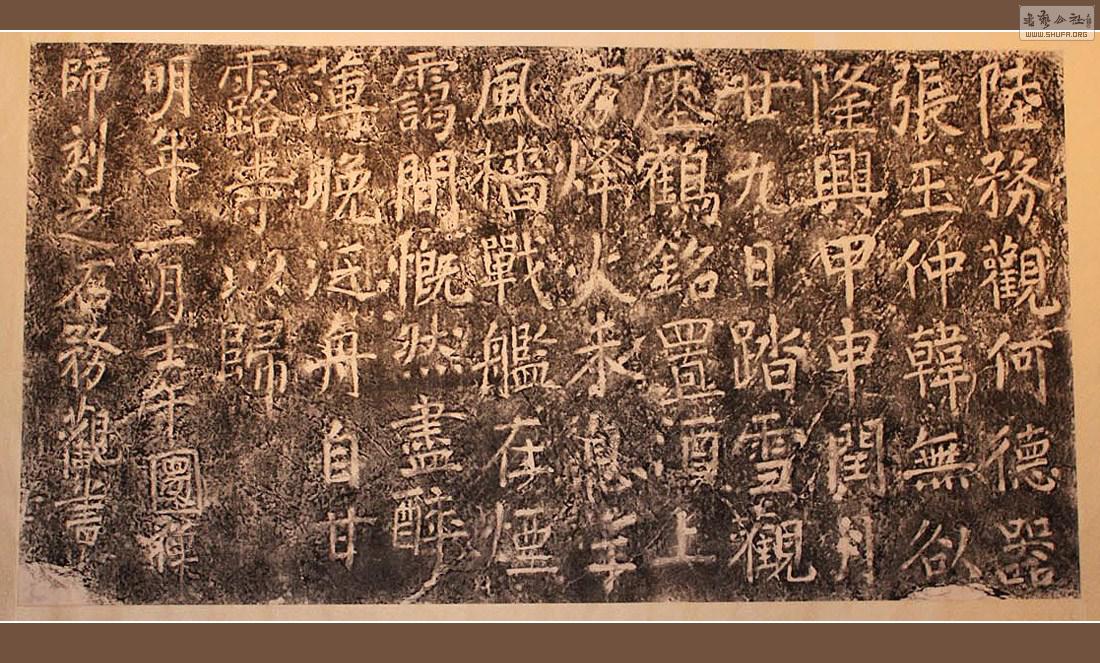 陸務觀何德器
張玉仲韓無咎
隆興甲申閏月
廿九日踏雪觀
瘞鶴銘置酒上
方烽火未息望
風檣戰艦在煙
靄間慨然盡醉
薄晚泛舟自甘
露寺以歸
明年二月壬午圜禪
師刻之石務觀書
WWW.SHUFA.ORG